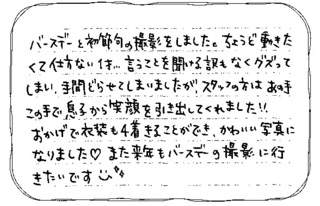 バースデーと初節句の撮影をしました。ちょうど動きた
くて仕方ない1才…言うことを聞ける訳もなくグズッて
しまい、手間どらせてしまいましたが、スタッフの方はあの手
この手で息子から笑顔を引き出してくれました!!
おかげで衣装も4着きることができ、かわいい写真に
なりました♡ また来年もバースデーの撮影に行
きたいです